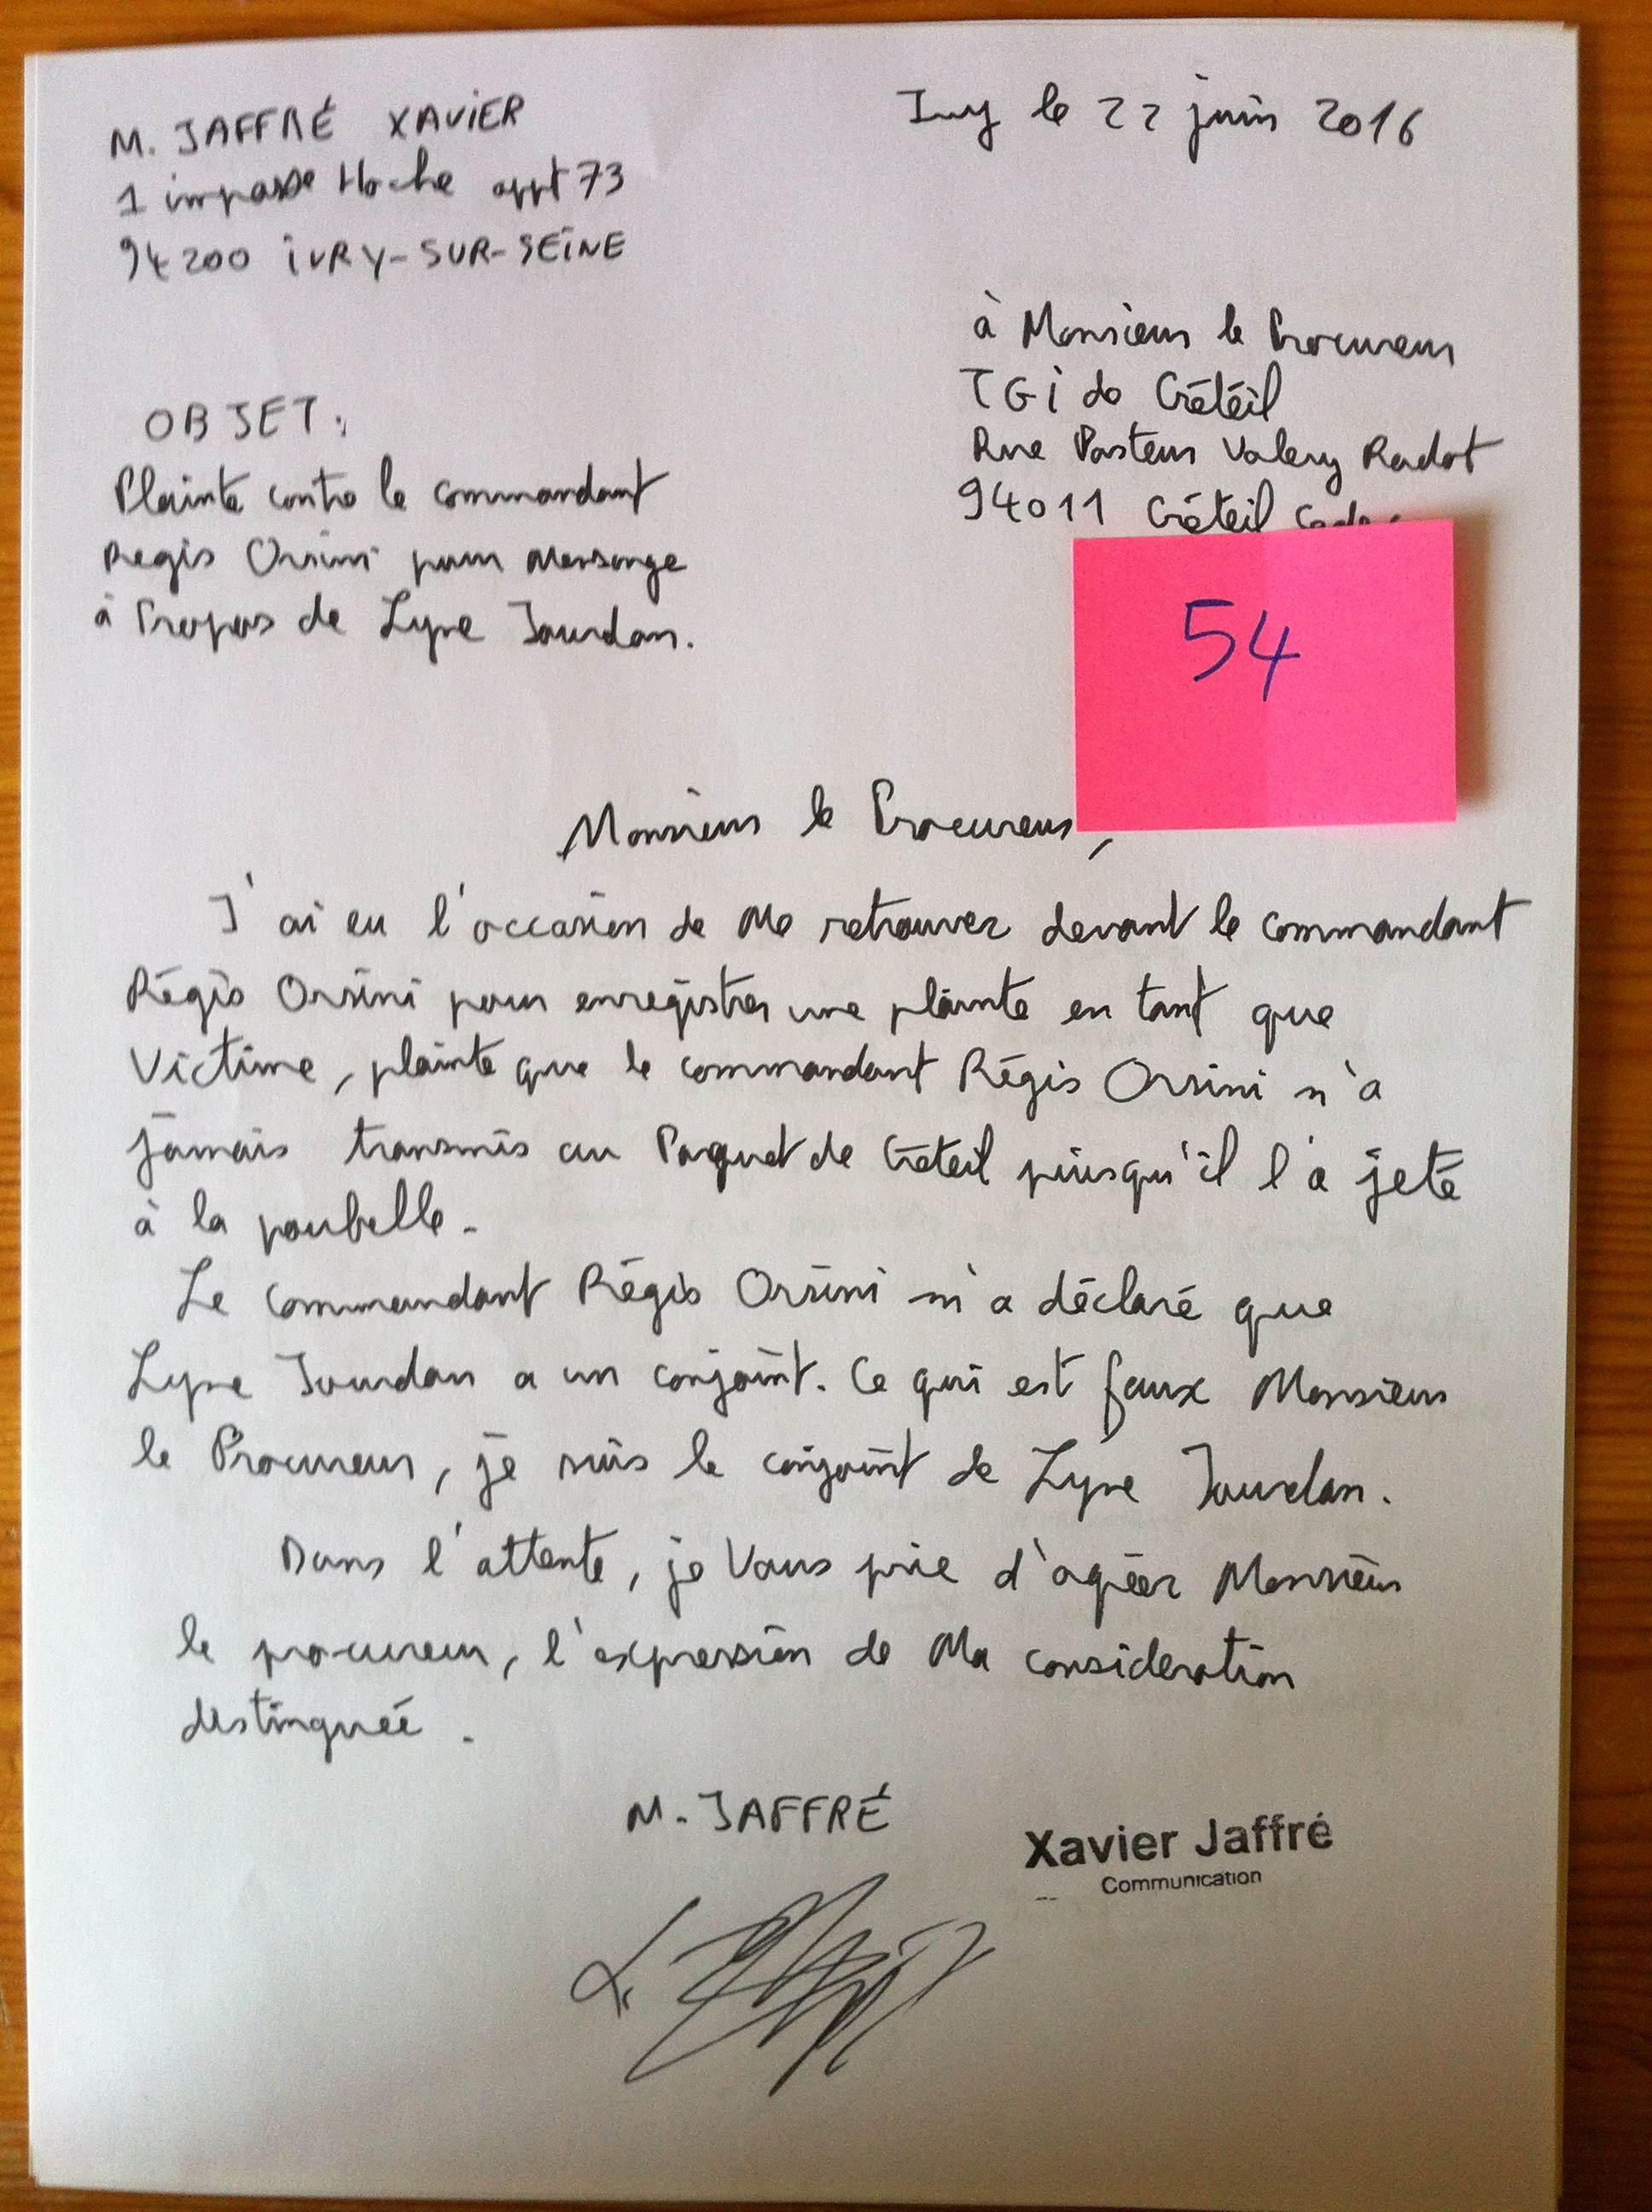 M. JAFFRÉ XAVIER
1 impasse Hoche appt 73
94200 IVRY-SUR-SEINE
Ivry le 22 juin 2016
à Monsieur le Procureur
TGI de Créteil
Rue Pasteur Valery Radot
94011 Créteil Cedex
OBJET:
Plainte contre le commandant
Régis Orsini pour Mensonge
à Propos de Lyne Jourdan.
54
Monsieur le Procureur,
J'ai eu l'occasion de Me retrouver devant le commandant
Régis Orsini pour enregistrer une plainte en tant que
Victime, plainte que le commandant Régis Orsini n'a
jamais transmis au Parquet de Créteil puisqu'il l'a jeté
à la poubelle.
Le commandant Régis Orsini m'a déclaré que
Lyne Jourdan a un conjoint. Ce qui est faux Monsieur
le Procureur, je suis le conjoint de Lyne Jourdan.
Dans l'attente, je Vous prie d'agréer Monsieur
le procureur, l'expression de Ma consideration
distinguée.
M. JAFFRÉ
Xavier Jaffré
Communication